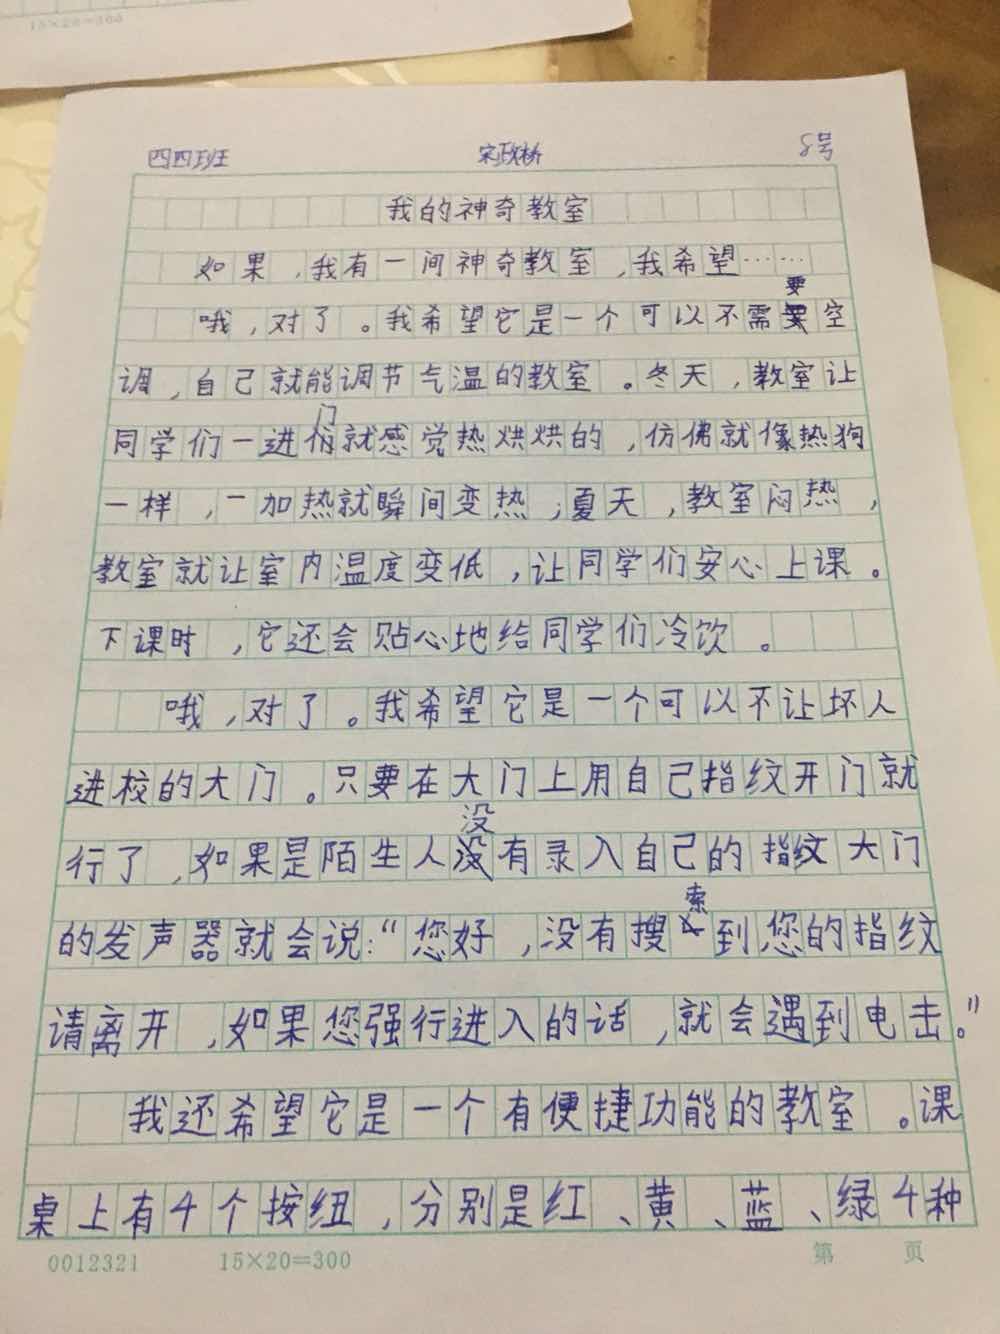 15×20=300
四四班 宋政桥 8号
我的神奇教室
如果,我有一间神奇教室,我希望……
哦,对了。我希望它是一个可以不需要空
调,自己就能调节气温的教室。冬天,教室让
同学们一进门就感觉热烘烘的,仿佛就像热狗
一样,一加热就瞬间变热;夏天,教室闷热,
教室就让室内温度变低,让同学们安心上课。
下课时,它还会贴心地给同学们冷饮。
哦,对了。我希望它是一个可以不让坏人
进校的大门。只要在大门上用自己指纹开门就
行了,如果是陌生人没有录入自己的指纹大门
的发声器就会说:“您好,没有搜索到您的指纹
请离开,如果您强行进入的话,就会遇到电击。”
我还希望它是一个有便捷功能的教室。课
桌上有4个按纽,分别是红、黄、蓝、绿4种
0012321 15×20=300 第 页